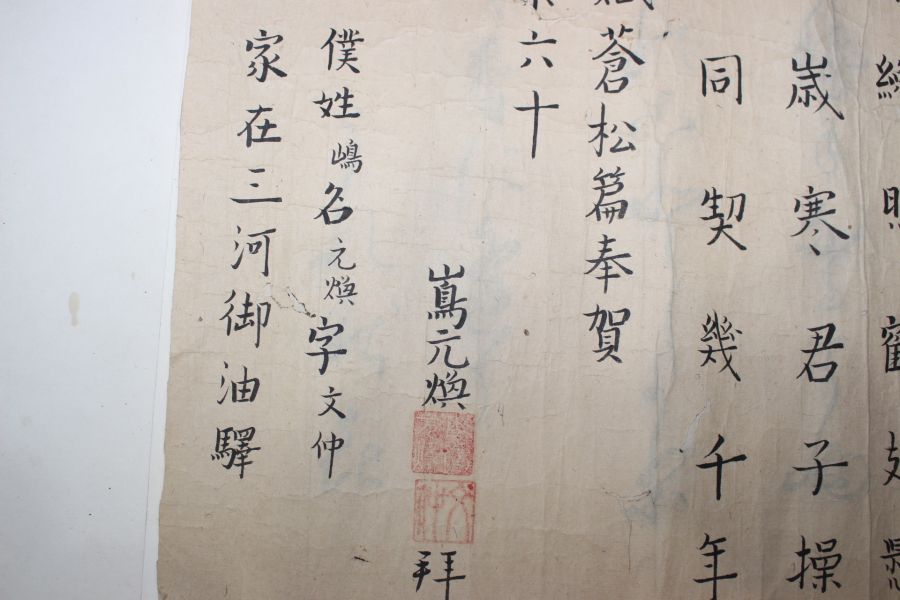 歳寒君子操
同契幾千年
蒼松篇奉賀
六十
嶌元煥
拜
僕姓嶋名元煥字文仲
家在三河御油驛